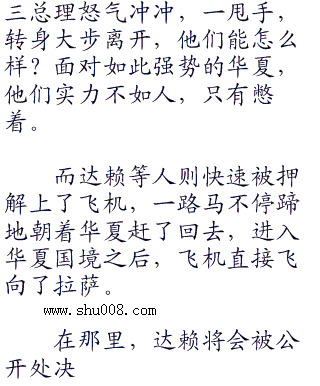 三总理怒气冲冲，一甩手，
转身大步离开，他们能怎么
样？面对如此强势的华夏，
他们实力不如人，只有憋
着。
而达赖等人则快速被押
解上了飞机，一路马不停蹄
地朝着华夏赶了回去，进入
华夏国境之后，飞机直接飞
向了拉萨。
www.shu008.com
在那里，达赖将会被公
开处决